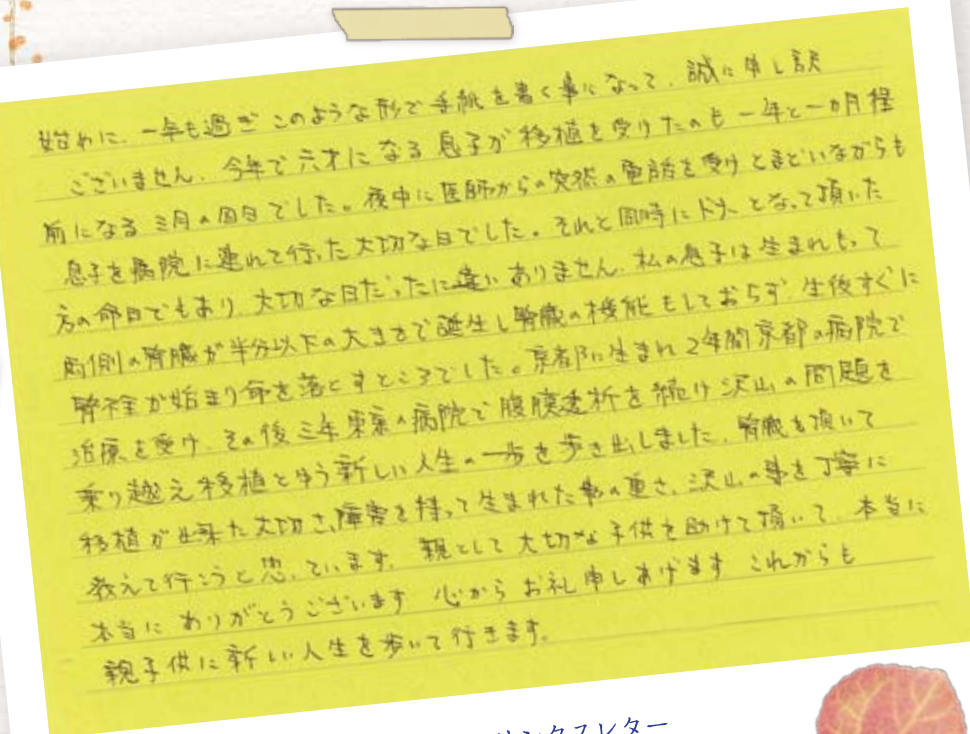 始めに、一年も過ぎこのような形で手紙を書く事になって、誠に申し訳
ございません、今年で六才になる息子が移植を受けたのも一年と一か月程
前になる三月の四日でした。夜中に医師からの突然の電話を受けとまどいながらも
息子を病院に連れて行った大切な日でした。それと同時にドナーとなって頂いた
方の命日でもあり、大切な日だったに違いありません、私の息子は生まれもって
両側の腎臓が半分以下の大きさで誕生し腎臓の機能もしておらず、生後すぐに
腎不全が始まり命を落とすところでした。京都に生まれ2年間京都の病院で
治療を受け、その後三年東京の病院で腹膜透析を続け沢山の問題を
乗り越え移植とゆう新しい人生の一歩を歩き出しました、腎臓を頂いて
移植が出来た大切さ、障害を持って生まれた事の重さ、沢山の事を丁寧に
教えて行こうと思っています。親として大切な子供を助けて頂いて、本当に
本当にありがとうございます 心からお礼申しあげます これからも
親子供に新しい人生を歩いて行きます。
サンクスレター